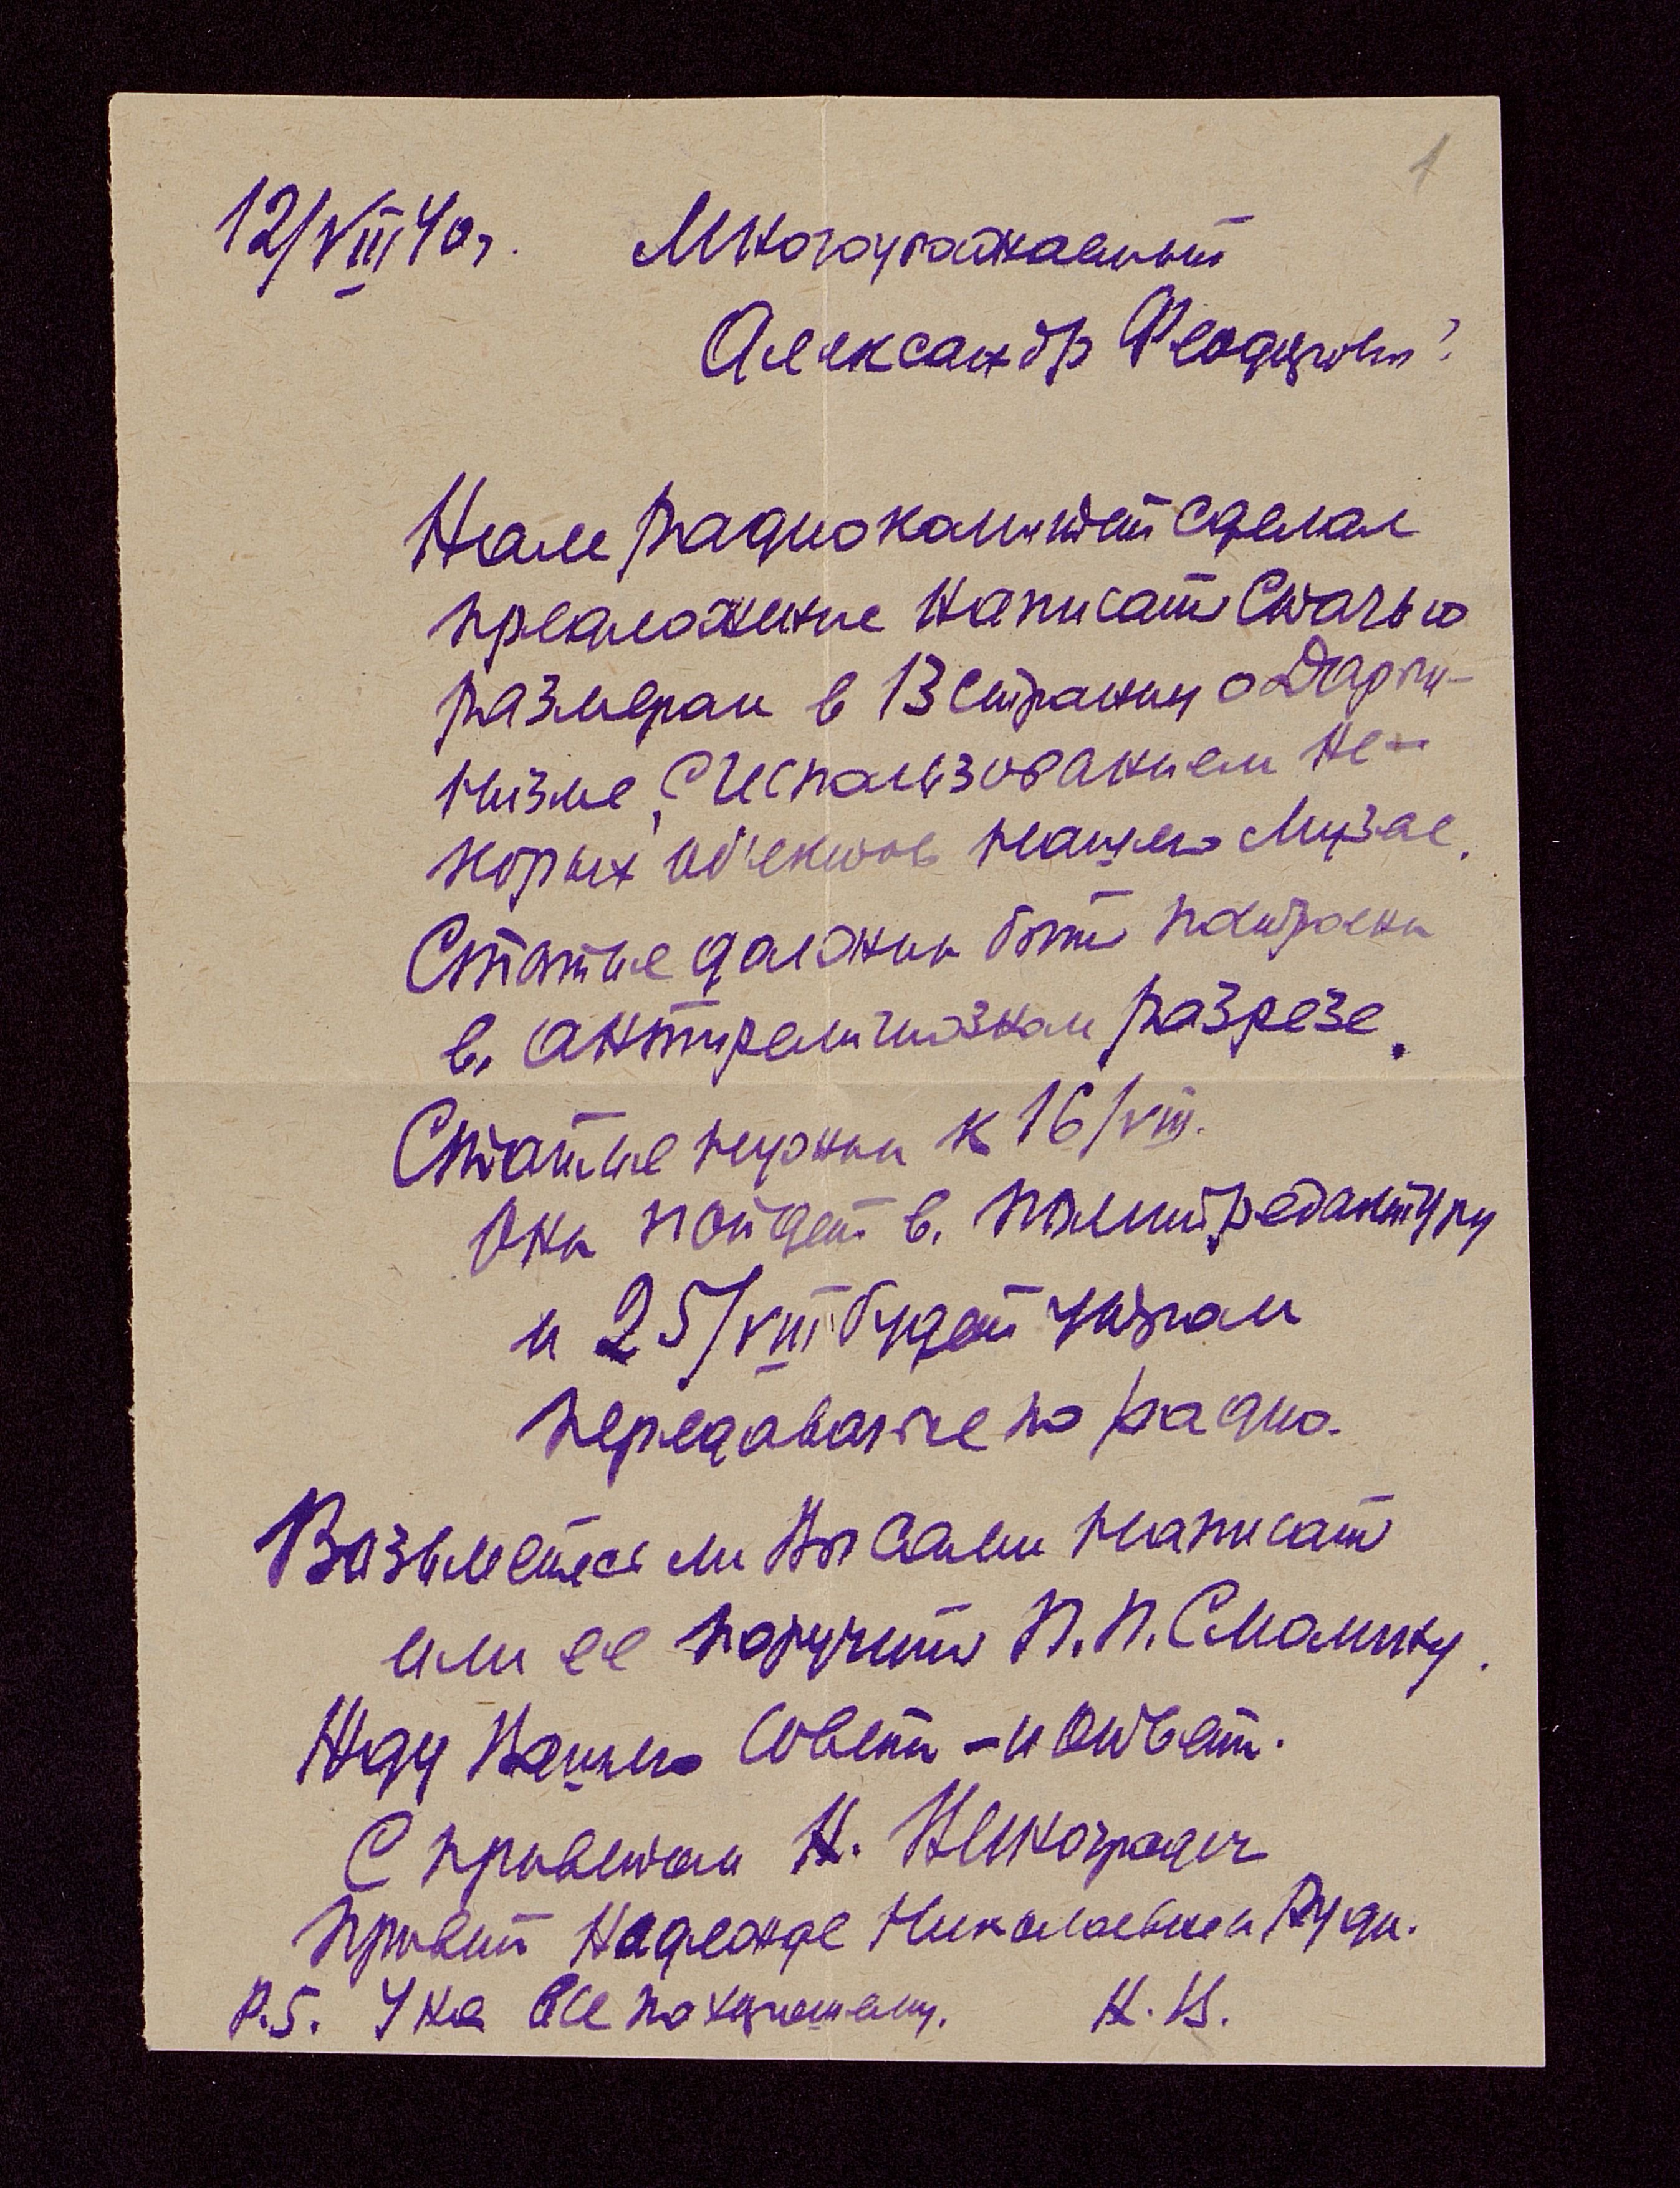 1
12/VIII 40 г. Многоуважаемый
Александр Феодорович!
Нам радиокомитет сделал
предложение написать Статью
размером в 13 страниц о Дарви-
низме, с использованием не-
которых об'ектов нашего Музея.
Статья должна быть построена
в. антирелигиозном разрезе.
Статья нужна к 16/VIII.
Она пойдет в. политредактуру
и 25/VIII будет
передаваться по радио.
Возьметесь ли Вы сами написать
или ее поручить П.П. Смолину.
Жду Вашего совета – и ответ.
С приветом Н.
Привет Надежде Николаевне и Руди.
P.S. У нас все по хорошему. Н.В.